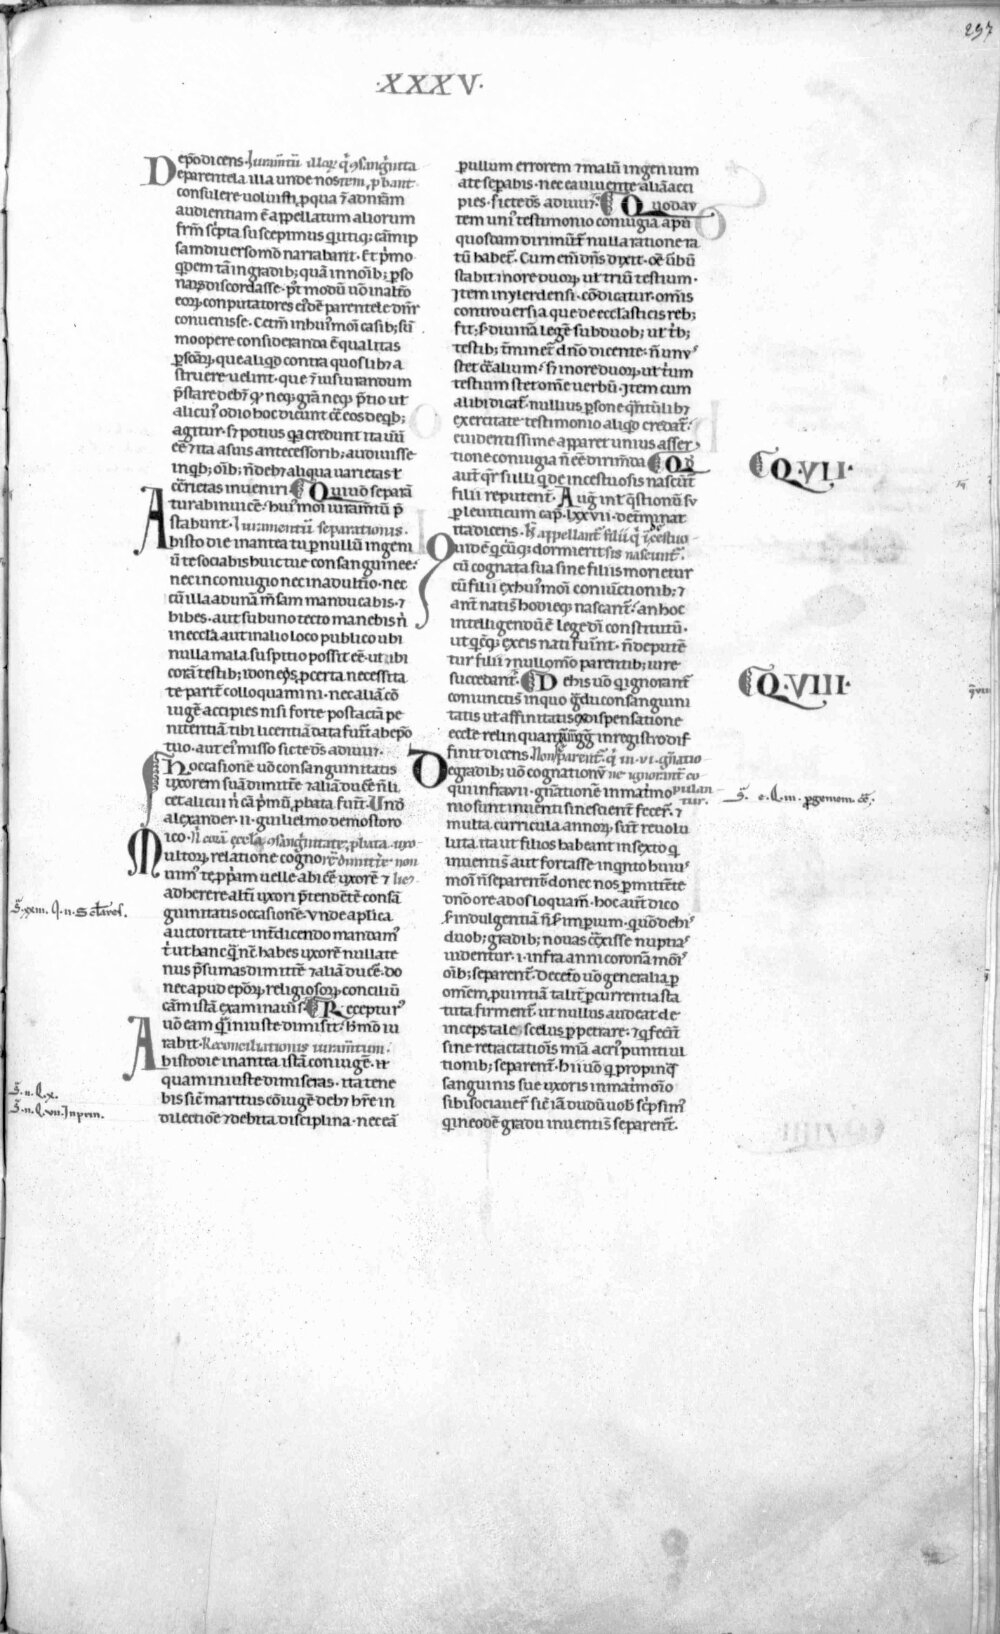 297
·XXXV·
ep̄o dicens. Iuram̄tū illoꝝ q̇ ꝯsanḡitta
De parentela illa unde nos rem, p̱bant
consulere uoluisti, p qua ⁊ ad nr̄am
audientiam ē appellatum aliorum
fr̄m sc̄pta suscepimus q̇ utiq; cām ip
sam diuerso modo narrabant. Et ṗmo
q̇dem tā in gradib; quā in noīb; ꝑso
naꝝ discordasse. p̄t modū uo in alt̄o
eoꝝ conputatores eiꝰdē parentele dn̄r
conuenisse. Cet̄m in huiꝰmoi casib; sū
moopere consideranda ē qualitas
ꝑsoaꝝ, que aliqd contra quoslib; a
struere uelint. que ⁊ iusiurandum
p̄stare deb; qꝰ neq; gr̄a neq; p̄tio ut
alicuiꝰ odio hoc dicunt eē eos de q̇b;
agitur. s; potius q̇a credunt ita uīi
eē ⁊ ita a suis antecessorib; audiuisse
in q̇b; oīb; n̄ deb; aliqua uarietas ł
cōtrietas inueniri. Qui uo separa
tura binui cē. huiꝰmoi iuram̄tū p̄
stabunt. Iuramentū separationis.
Ab isto die in antea tu ꝑ nullū ingeni
ū te sociabis huic tue consanguinee.
nec in coniugio nec in adulṫio. nec
cū illa ad unā m̄sam manducabis. ⁊
bibes. aut sub uno tecto manebis n̄
in eccl̄a aut in alio loco publico ubi
nulla mala suspitio possit eē. ut ubi
corā testib; idoneꝰ ꝑ certa necessita
te parit̄ colloquamini. nec aliā cō
iugē accipies nisi forte post actā pe
nitentiā tibi licentia data fuīt ab ep̄o
tuo. aut eiꝰ misso sic te ds̄ adiuuꝫ.
hoccasione uō consanguinitatis
uxorem suā dimittē ⁊ aliā ducē n̄ li
cet alicui n̄ cā p̄mū, p̱bata fuīt. Unō
alexander. ii. guilielmo de mostoro
ico. N̄ corā eccl̄a ꝯsang̊itate, p̱bata uxo
Multoꝝ, relatione cognore dimittē non
uimꝰ te, p̱pam uelle abicē uxorē ⁊ licꝫ
adherere alt̄i uxori p̄tendētē consā
guinitatis occasionē. Vnde ap̄lica
auctoritate int̄dicendo mandamꝰ
t̄ ut hanc q̄ nc̄ habes uxorē nullate
nus p̄sumas dimittē ⁊ aliā ducē. do
nec apud ep̄oꝝ, religiosoꝝ, conciliū
cām istā examinauīs. Receptur
uō eam q̄ iniuste dimisit. h̄mō iu
rabit. Reconciliationis iuram̄tum.
Ab isto die in antea istā coniugē. tr̄
quam iniuste dimiseras. ita tene
bis siē maritus cōiugē deb; h̄re in
dilectiōe ⁊ debita disciplina. nec eā
pullum errorem ⁊ malū ingenium
a te seꝑabis. nec ea uiuente aliā acci
pies. sic te ds̄ adiuuꝫ. Quod au
tem uniꝰ testimonio coniugia apū
quosdam dirimūt̄. nulla ratione ra
tū habet̄. Cum em̄ dn̄s dixit. oē ūbū
stabit in ore duoꝝ, ut triū testium.
Item in ylerdensi. cō dicatur. om̄is
controuersia que de ecclasticis reb;
fit; s; diuinā legē sub duob; ut t̄b;
testib; t̄minet̄ dn̄o dicente. n̄ unꝰ
stet cōt̄ alium. s; in ore duoꝝ, ut t̄um
testium stet ome uerbū. Item cum
alibi dicat̄. nullius ꝑsone q̄ntūlib;
exercitate testimonio aliqd credat̄.
euidentissime apparet unius asser
tione coniugia n̄ eē dirim̄da. Qd̄
aut̄ q̄r̄ si filii q̇ de incestuosis nascūt̄
filii reputent̄. Auḡ int̄ q̄stionū sup
ꝑ leuiticum cap̄. lxxvii. det̄minat
ita dicens. N̄ appellant̄ filii q̇ ī cestuo
Quidē q̄cūq; dormierit sis nascunt̄.
cū cognata sua sine filiis morietur
cū filii ex huiꝰmoi coniūctionib; ⁊
ant̄ natis hodieq; nascant̄. an hoc
intelligendū ē lege dī constitutū.
ut q̇cq; ex eis nati fuīnt. n̄ depute
tur filii ⁊ nullo mō parentib; iure
succedant̄. De his uō q̇ ignorant̄
coniunctis in quo gdu consanguini
tatis ut affinitatis ex dispensatione
eccl̄e relinquantur. gg̊ in registro dif
finit dicens. Non separent̄. q̇ in. vi. gn̄atio
De gradib; uō cognationū ne ignorant̄ co
pulan
tur.
qui infra. vii. gn̄ationē in mat̄mo
nio sunt inuenti si nescient̄ fecer̄. ⁊
multa curricula annoꝝ, sūt reuolu
luta. ita ut filios habeant in sexto q̇
inuentis aut̄ fortasse in q̇nto huiꝰ
moi n̄ separent̄ donec nos ꝑmittēte
dn̄o ore ad os loquam̄. hoc aut̄ dico
s; indulgentiā n̄ s; imꝑium. quō de hiꝰ
duob; gradib; nouas cōt̄xisse nuptiaꝰ
uidentur. i. infra anni coronā mōiꝰ
oīb; separent̄. Decet̄o uō generali aꝑ
om̄em, p̱uintiā talit̄ ꝑcurrentia sta
tuta firment̄. ut nullus audeat de
inceps tale scelus ꝑpetrare. ⁊ q̇ fec̄it
sine retractatiōis miā acriꝰ puniti ui
tionib; separent̄. hii uō q̇ propinq̄
sanguinis sue uxoris in mat̄moīo
sibi sociauer̄. siē iā dudū uob̄ sc̄psimꝰ
q̇ in eodē gradu inuentis separent̄.
Q·VII·
Q·VIII·
S̄. xxiii. q. ii. S clares.
S̄. ii. q. x.
S̄. ii. q. vii. In prin.
S̄. e. q. iii. ꝑgemem. cō.